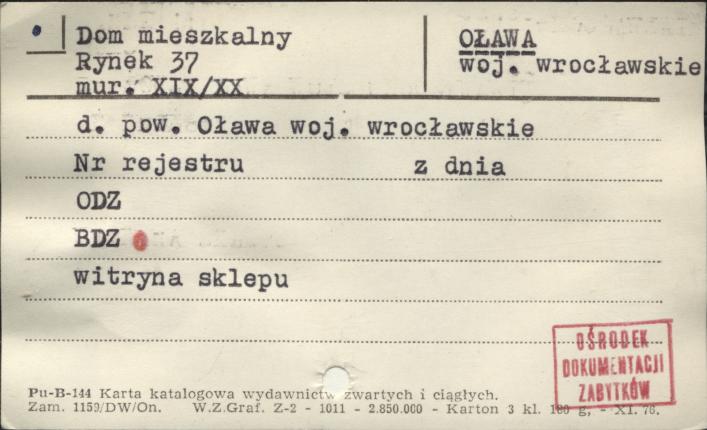 Dom mieszkalny
Rynek 37
mur. XIX/XX
OŁAWA
woj. wrocławskie
d. pow. Oława woj. wrocławskie
Nr rejestru z dnia
ODZ
BDZ
witryna sklepu
OŚRODEK
DOKUMENTACJI
ZABYTKÓW
Pu-B-144 Karta katalogowa wydawnictw zwartych i ciągłych.
Zam. 1159/DW/On. W.Z.Graf. Z-2 - 1011 - 2.850.000 - Karton 3 kl. 180 g, - XI. 76.